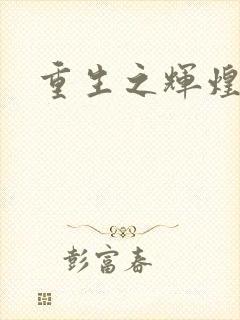 重生之辉煌
彭富春